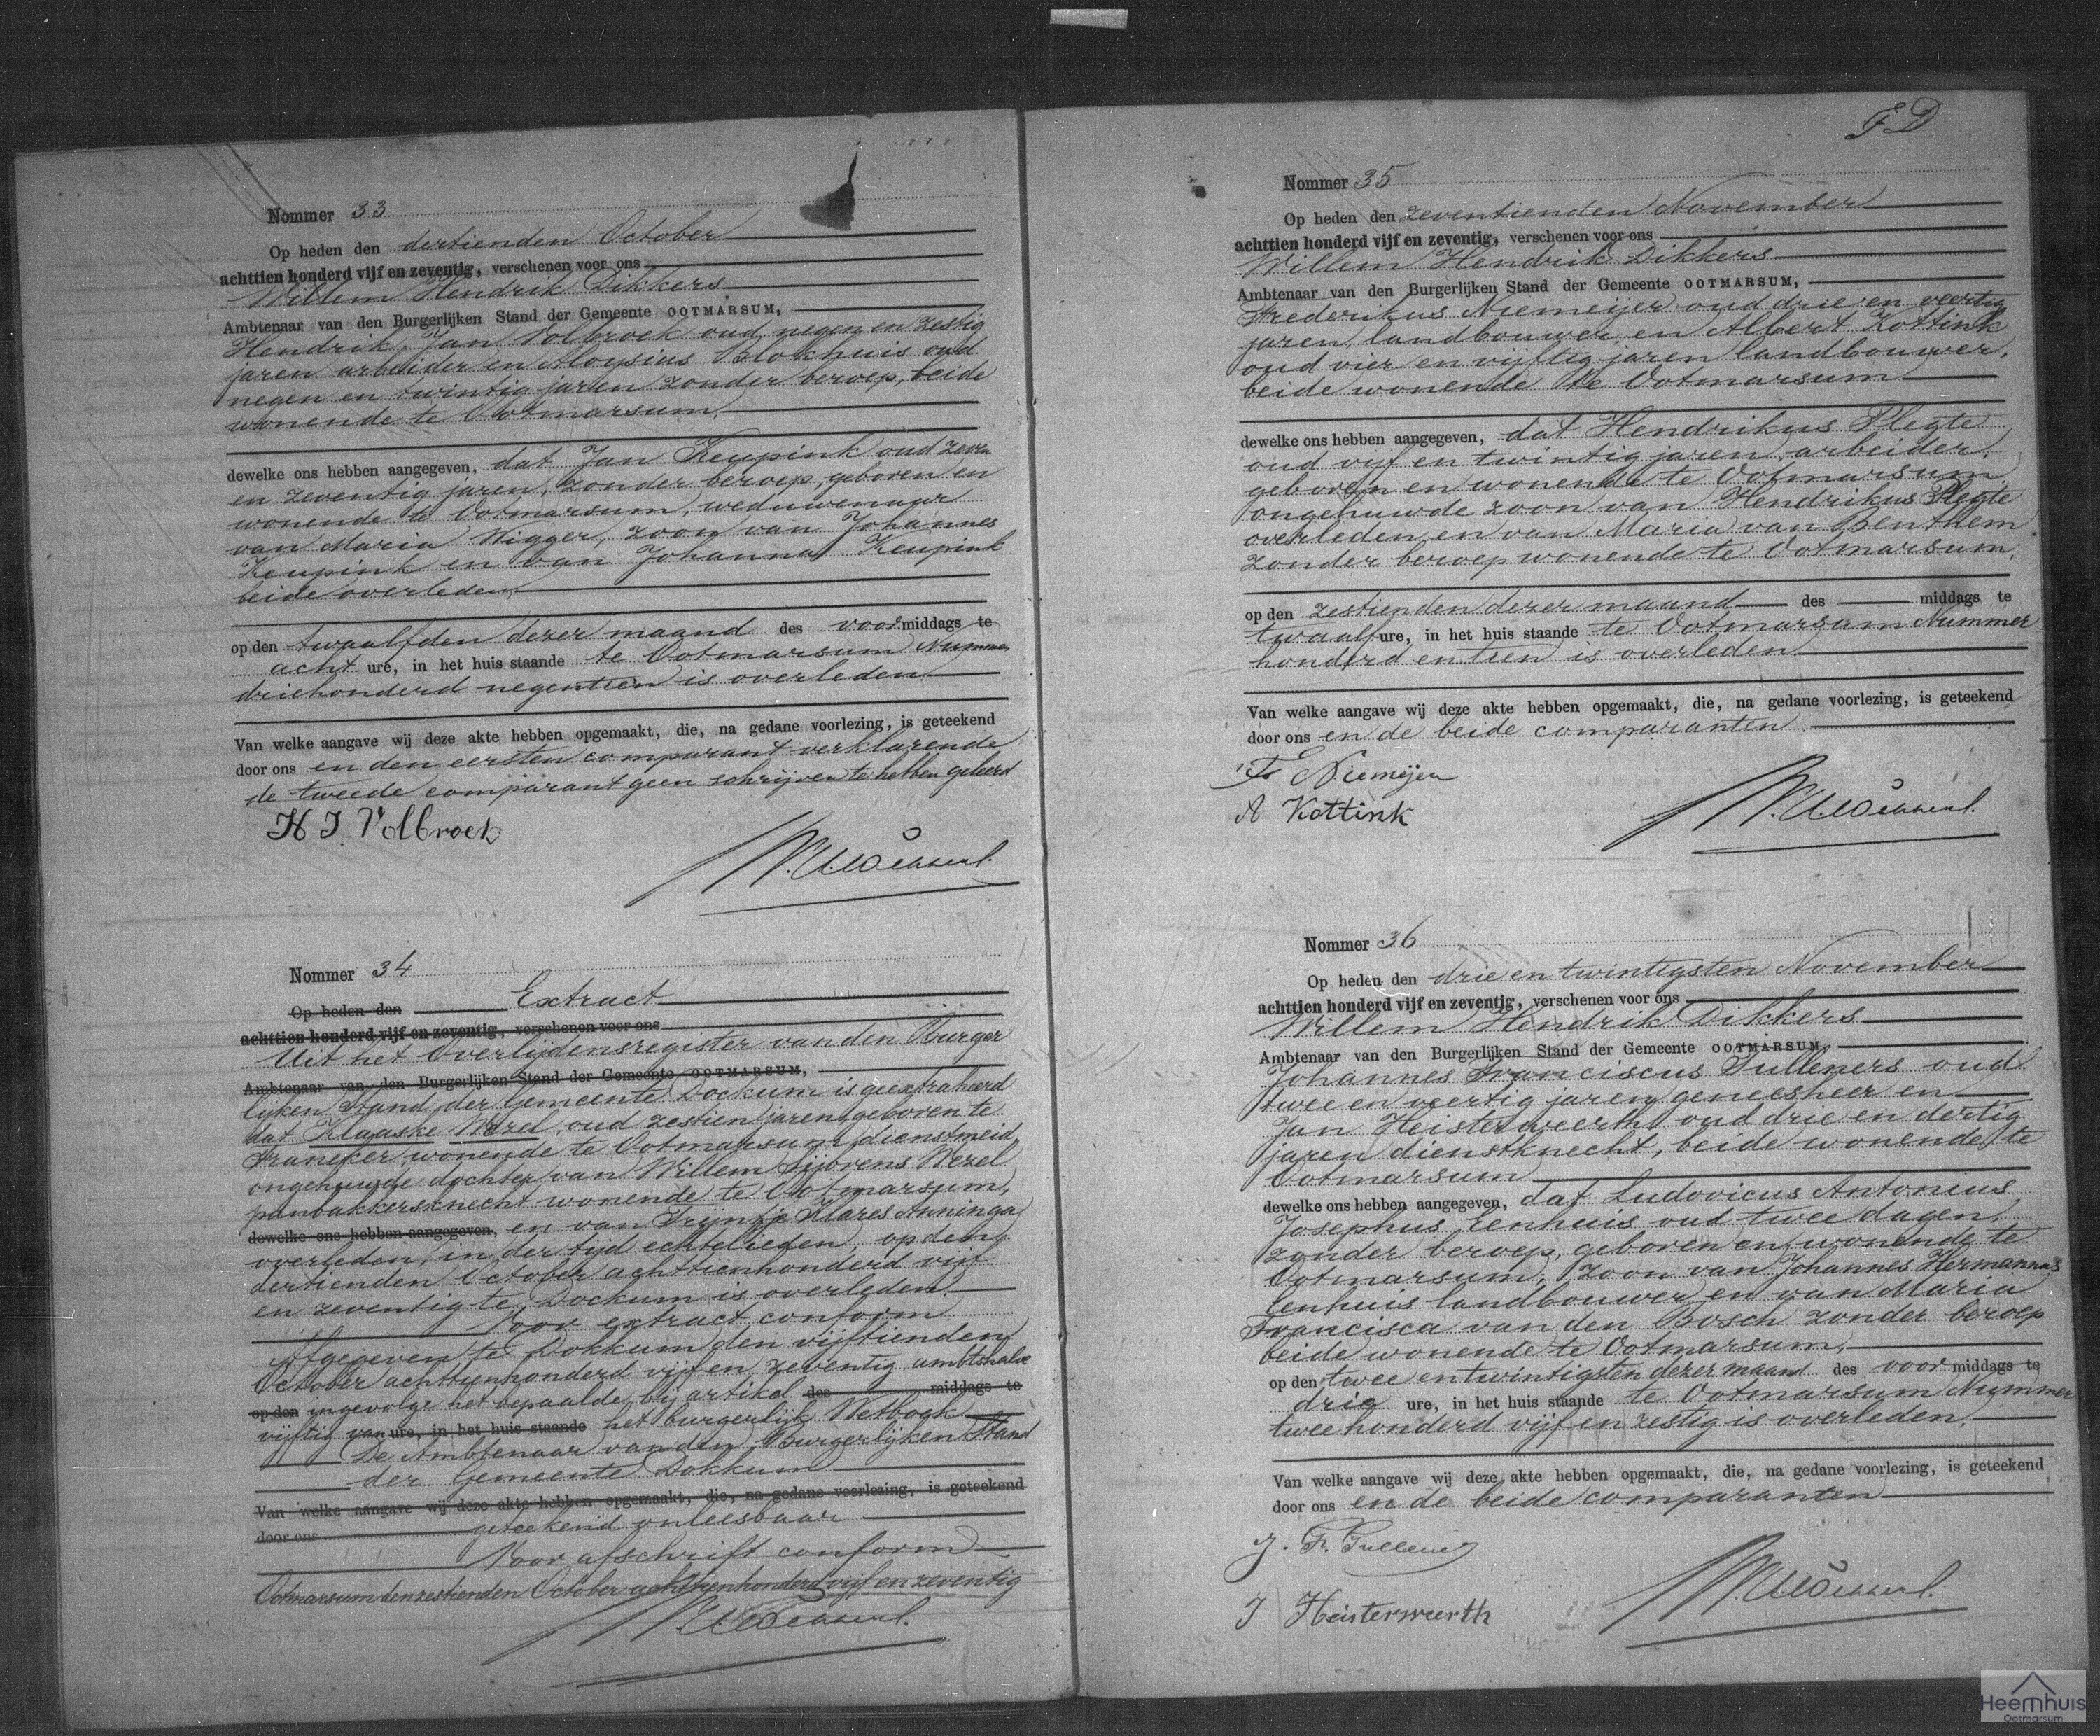 Nommer 33
Op heden den dertienden October
achttien honderd vijf en zeventig, verschenen voor ons
Willem Hendrik Dikkers
Ambtenaar van den Burgerlijken Stand der Gemeente OOTMARSUM,
Hendrik Jan Volbroek oud negen en zestig
jaren arbeider en Aloysius Blokhuis oud
negen en twintig jaren zonder beroep, beide
wonende te Ootmarsum.
dewelke ons hebben aangegeven, dat Jan Keupink oud zeven
en zeventig jaren, zonder beroep, geboren en
wonende te Ootmarsum, weduwenaar
van Maria Wigger, zoon van Johannes
Keupink en van Johanna Keupink
beide overleden,
op den twaalfden dezer maand des voormiddags te
acht ure, in het huis staande te Ootmarsum Nummer
driehonderd negentien is overleden.
Van welke aangave wij deze akte hebben opgemaakt, die, na gedane voorlezing, is geteekend
door ons en den eersten comparant verklarende
de tweede comparant geen schrijven te hebben geleerd
H J. Volbroek
Nommer 34
Op heden den Extract
achttien honderd vijf en zeventig, verschenen voor ons
Uit het Overlijdensregister van den Burger
Ambtenaar van den Burgerlijken Stand der Gemeente OOTMARSUM,
lijken Stand der Gemeente Dockum is geextraheerd
dat Klaaske Wezel, oud zestien jaren, geboren te
Franeker, wonende te Ootmarsum, dienstmeid,
ongehuwde dochter van Willem Sijbrens Wezel
panbakkersknecht wonende te Ootmarsum,
dewelke ons hebben aangegeven, en van Trijntje Klares Anninga
overleden, in der tijd echtelieden, op den
dertienden October achttienhonderd vijf
en zeventig te Dockum is overleden.
Voor extract conform
Afgegeven te Dokkum den vijftienden
October achttienhonderd vijf en zeventig ambtshalve
op den ingevolge het bepaalde bij artikel des middags te
vijftig van ure, in het huis staande het burgerlijk Wetboek
De Ambtenaar van den Burgerlijken Stand
der Gemeente Dokkum
Van welke aangave wij deze akte hebben opgemaakt, die, na gedane voorlezing, is geteekend
door ons geteekend onleesbaar
Voor afschrift conform
Ootmarsum den zestienden October achttienhonderd vijf en zeventig
F D
Nommer 35
Op heden den zeventienden November
achttien honderd vijf en zeventig, verschenen voor ons
Willem Hendrik Dikkers
Ambtenaar van den Burgerlijken Stand der Gemeente OOTMARSUM,
Frederikus Niemeijer oud drie en veertig
jaren, landbouwer, en Albert Kottink
oud vier en vijftig jaren landbouwer,
beide wonende te Ootmarsum
dewelke ons hebben aangegeven, dat Hendrikus Plegte
oud vijf en twintig jaren, arbeider,
geboren en wonende te Ootmarsum
ongehuwde zoon van Hendrikus Plegte
overleden, en van Maria van Benthem
zonder beroep wonende te Ootmarsum,
op den zestienden dezer maand des middags te
twaalf ure, in het huis staande te Ootmarsum Nummer
honderd en tien is overleden
Van welke aangave wij deze akte hebben opgemaakt, die, na gedane voorlezing, is geteekend
door ons en de beide comparanten.
F Niemeijer
A Kottink
Nommer 36
Op heden den drie en twintigsten November
achttien honderd vijf en zeventig, verschenen voor ons
Willem Hendrik Dikkers
Ambtenaar van den Burgerlijken Stand der Gemeente OOTMARSUM,
Johannes Franciscus Tulleners oud
twee en veertig jaren geneesheer en
Jan Heisterweerth oud drie en dertig
jaren dienstknecht, beide wonende te
Ootmarsum
dewelke ons hebben aangegeven, dat Ludovicus Antonius
Josephus Eenhuis oud twee dagen,
zonder beroep, geboren en wonende te
Ootmarsum, zoon van Johannes Hermannus
Eenhuis landbouwer en van Maria
Francisca van den Bosch zonder beroep
beide wonende te Ootmarsum,
op den twee en twintigsten dezer maand des voormiddags te
drie ure, in het huis staande te Ootmarsum Nummer
twee honderd vijf en zestig is overleden.
Van welke aangave wij deze akte hebben opgemaakt, die, na gedane voorlezing, is geteekend
door ons en de beide comparanten
J. Fr. Tulleners
J Heisterweerth
Heemhuis
Ootmarsum